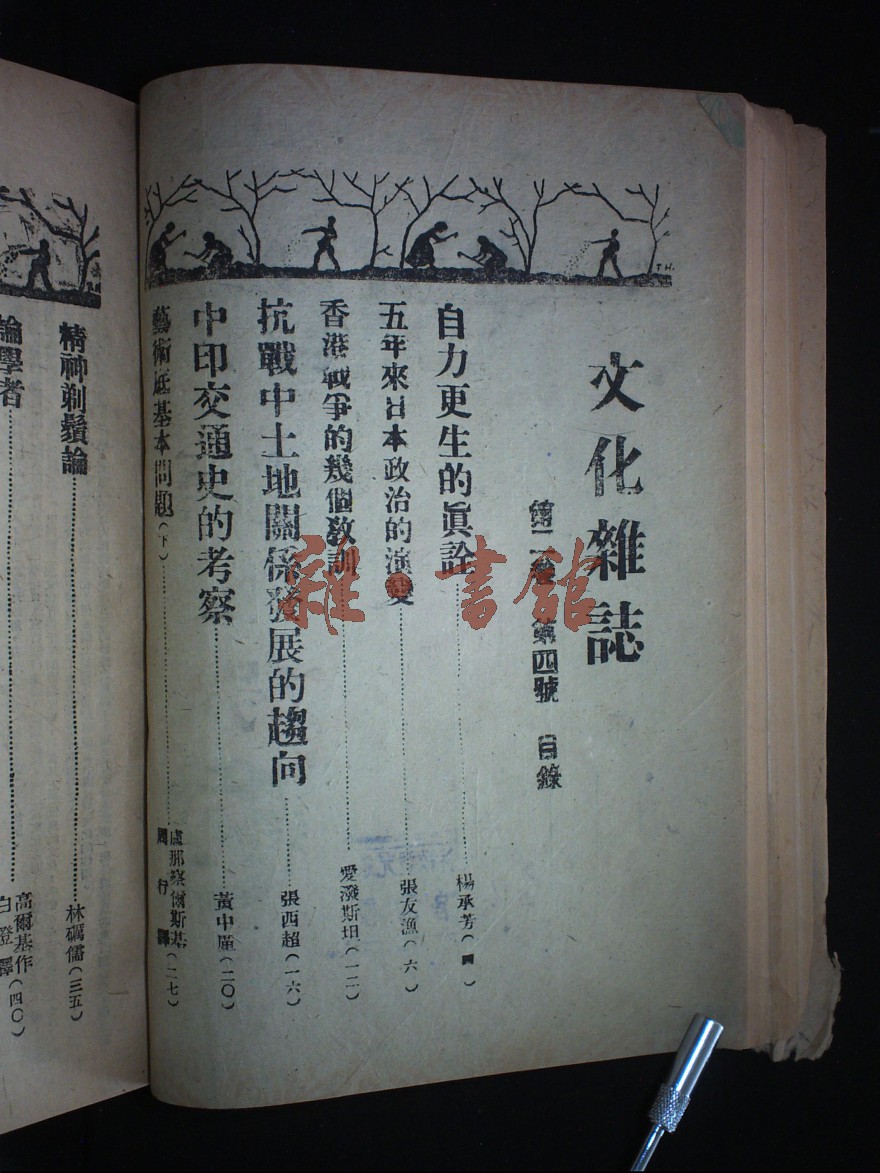 文化雜誌
第二卷 第四號 目錄
自力更生的眞詮……楊承芳(四)
五年來日本政治的演變……張友漁(六)
香港戰爭的幾個敎訓……愛潑斯坦(一二)
抗戰中土地關係發展的趨向……張西超(一六)
中印交通史的考察……黃中廑(二〇)
藝術底基本問題(下)……盧那察爾斯基 周行譯(二七)
精神剃鬚論……林礪儒(三五)
論學者……高爾基作 白澄譯(四〇)
雜·書館
TH.